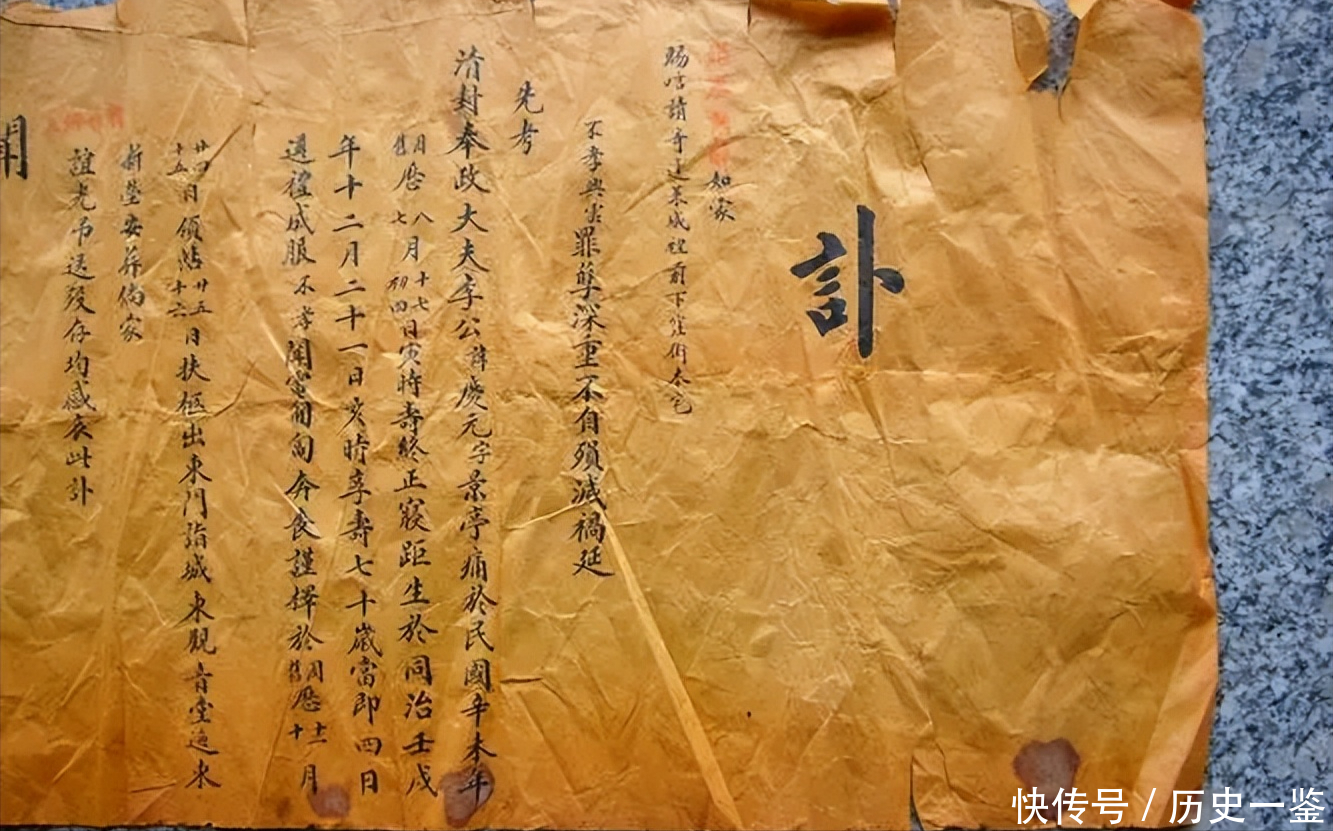 訃
如蒙
賜唁請寄達
不孝興罪孽深重不自殞滅禍延
先考
清封奉政大夫李公諱慶元字景亭痛於民國辛未年
國舊曆八七月十七初四日寅時壽終正寢距生於同治壬戌
年十二月二十一日亥時享壽七十歲當即四日
遵禮成服不孝聞電匍匐奔喪謹擇於國舊曆十一十月
廿四十五日領帖廿五十六日扶柩出東門指城東觀音堂迤東
新塋安葬倘蒙
誼光弔送歿存均感哀此訃
聞
快传号 / 历史一鉴